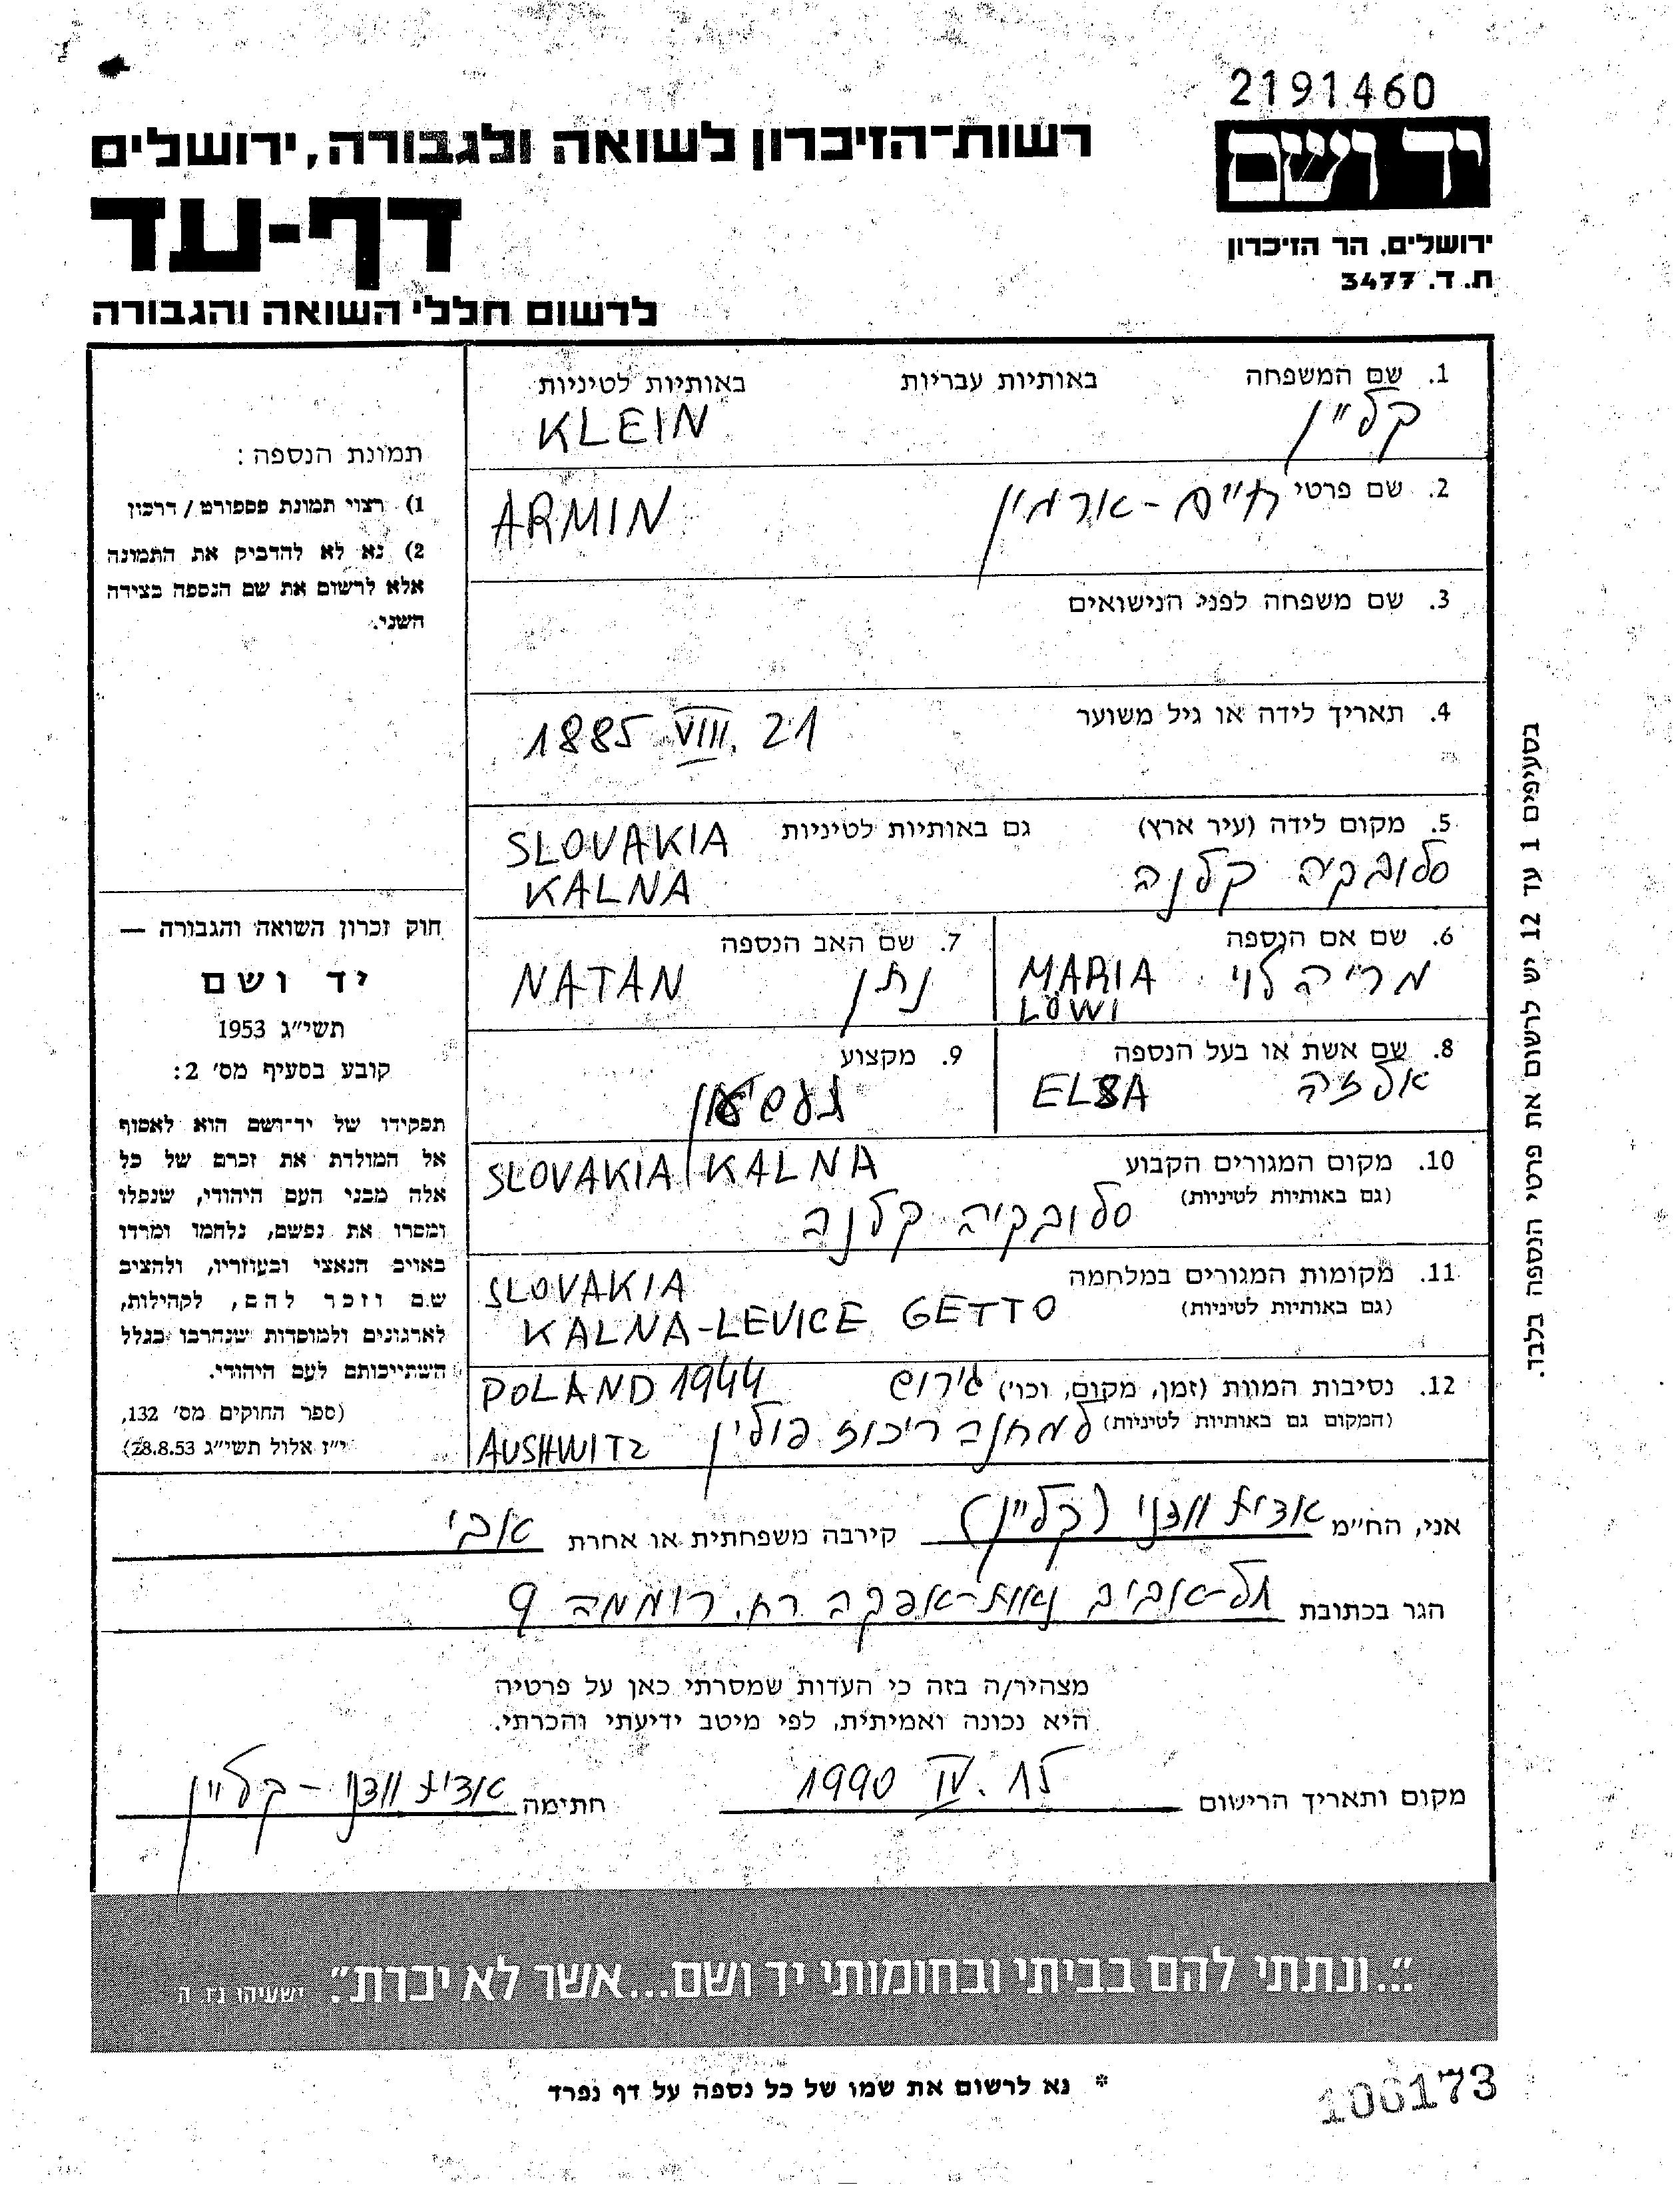 2191460
יד ושם
ירושלים, הר הזיכרון
ת.ד. 3477
רשות-הזיכרון לשואה ולגבורה, ירושלים
דף-עד
לרשום חללי השואה והגבורה
1. שם המשפחה באותיות עבריות באותיות לטיניות
קליין KLEIN
2. שם פרטי חיים-ארמין ARMIN
3. שם משפחה לפני הנישואים
4. תאריך לידה או גיל משוער
1885 VIII. 21
5. מקום לידה (עיר ארץ) גם באותיות לטיניות SLOVAKIA
סלובקיה קלנה KALNA
6. שם אם הנספה
מריה לוי MARIA
LÖWI
7. שם האב הנספה
נתן NATAN
8. שם אשת או בעל הנספה
אלזה ELSA
9. מקצוע
10. מקום המגורים הקבוע SLOVAKIA KALNA
(גם באותיות לטיניות)
סלובקיה קלנה
11. מקומות המגורים במלחמה SLOVAKIA
(גם באותיות לטיניות) KALNA-LEVICE GETTO
12. נסיבות המוות (זמן, מקום, וכו') גירוש POLAND 1944
(המקום גם באותיות לטיניות) למחנה ריכוז פולין AUSHWITZ
תמונת הנספה:
1) רצוי תמונת פספורט/דרכון
2) נא לא להדביק את התמונה
אלא לרשום את שם הנספה בצידה
השני.
חוק זכרון השואה והגבורה —
יד ושם
תשי"ג 1953
קובע בסעיף מס' 2:
תפקידו של יד-ושם הוא לאסוף
אל המולדת את זכרם של כל
אלה מבני העם היהודי, שנפלו
ומסרו את נפשם, נלחמו ומרדו
באויב הנאצי ובעוזריו, ולהציב
שם וזכר להם, לקהילות,
לארגונים ולמוסדות שנהרבו בגלל
השתייכותם לעם היהודי.
(ספר החוקים מס' 132,
י"ז אלול תשי"ג 28.8.53)
בסעיפים 1 עד 12 יש לרשום את פרטי הנספה בלבד.
אני, הח"מ אדית (קליין) קירבה משפחתית או אחרת אבי
הגר בכתובת תל-אביב נאות-אפקה רח. רוממה 9
מצהיר/ה בזה כי העדות שמסרתי כאן על פרטיה
היא נכונה ואמיתית, לפי מיטב ידיעתי והכרתי.
מקום ותאריך הרישום 1990 IV. חתימה אדית - קליין
"...ונתתי להם בביתי ובחומותי יד ושם...אשר לא יכרת". ישעיהו נו ה
* נא לרשום את שמו של כל נספה על דף נפרד
106173